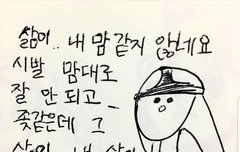 삶이.. 내 맘 같지 않네요
시발 맘대로
잘 안 되고_
좆같은데 그